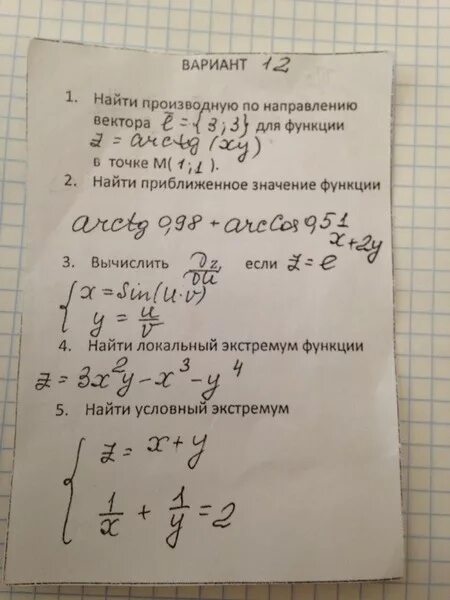 ВАРИАНТ 12
1. Найти производную по направлению
вектора l̅ = {3; 3} для функции
z = arctg (xy)
в точке М(1;1).
2. Найти приближенное значение функции
arctg 0,98 + arccos 0,51
3. Вычислить ∂z/∂u если z = e^(x+2y)
{ x = sin(u·v)
y = u/v
4. Найти локальный экстремум функции
z = 3x²y − x³ − y⁴
5. Найти условный экстремум
{ z = x + y
1/x + 1/y = 2